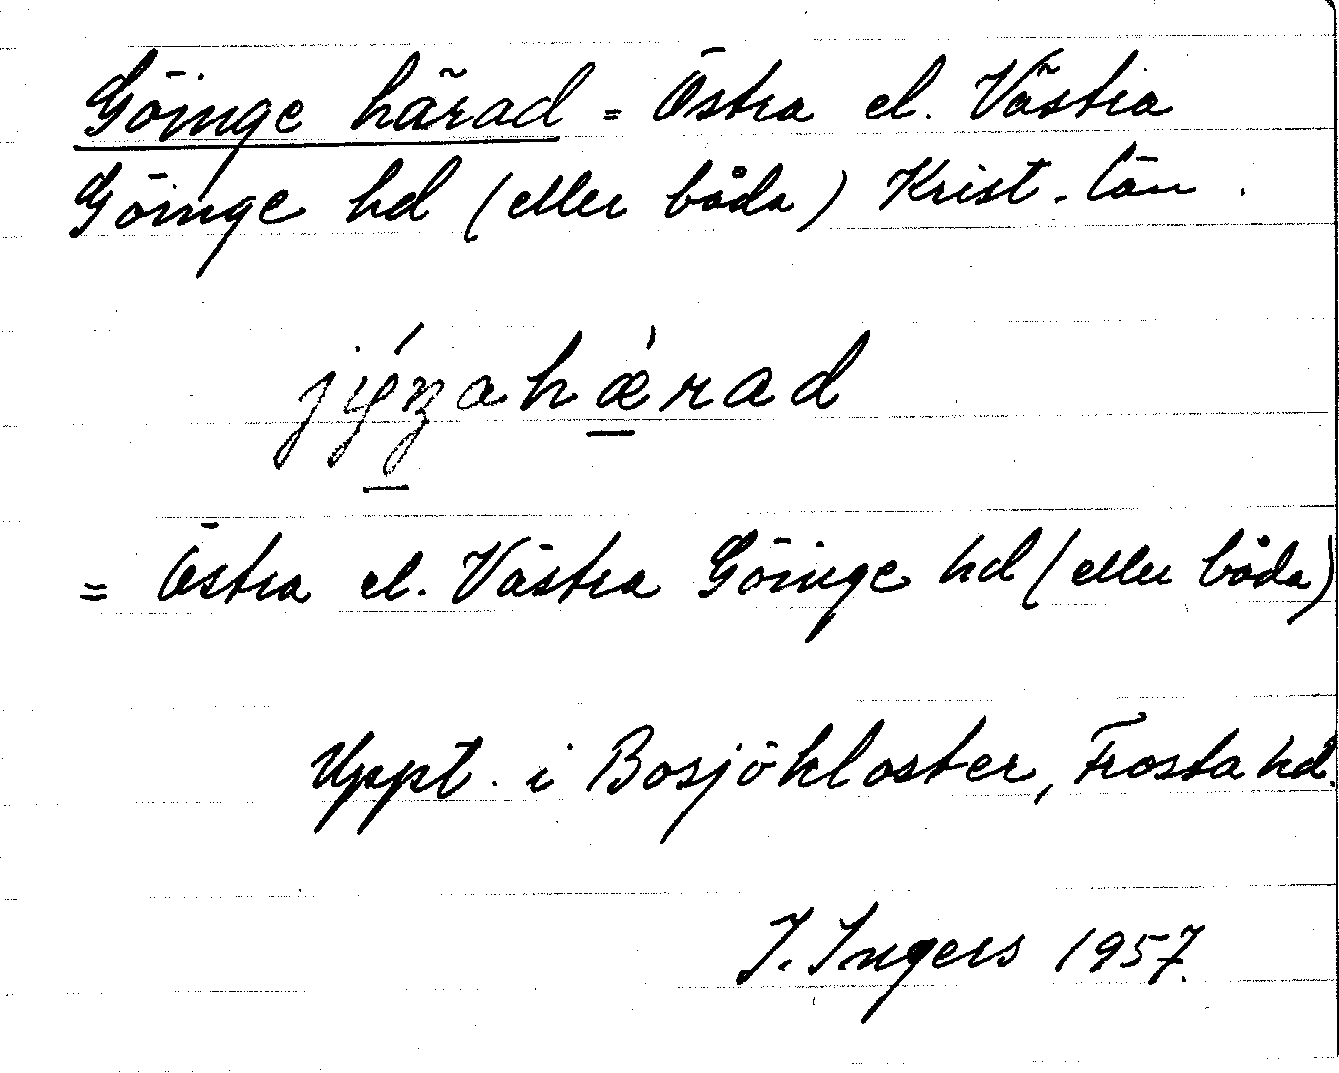 Göinge härad = Östra el. Västra
Göinge hd (eller båda) Krist. län.
= Östra el. Västra Göinge hd (eller båda)
Uppt. i Bosjökloster, Frosta hd.
I. Ingers 1957.